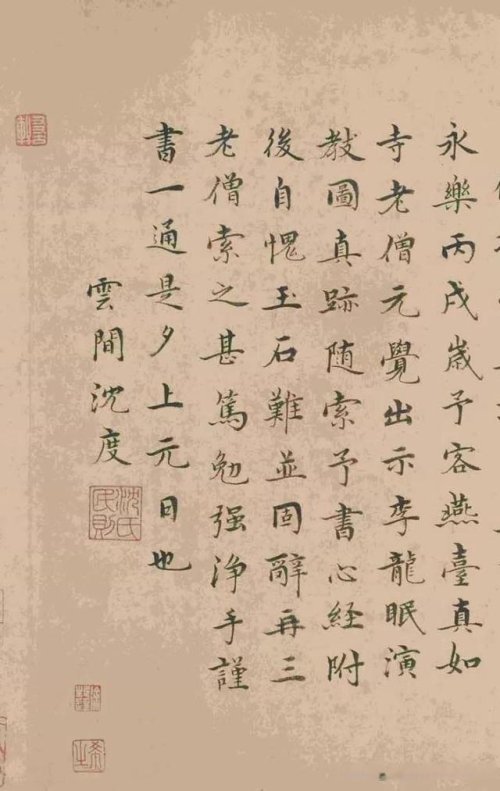 永樂丙戌歲予客燕臺真如
寺老僧元覺出示李龍眠演
教圖真跡随索予書心經附
後自愧玉石難並固辭再三
老僧索之甚篤勉强淨手謹
書一通是夕上元日也
雲間沈度
沈氏民則